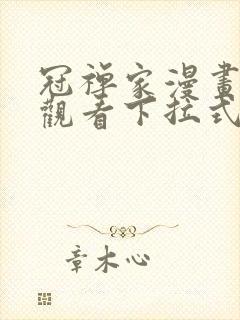 冠禅家漫畫
觀看下拉式
章木心